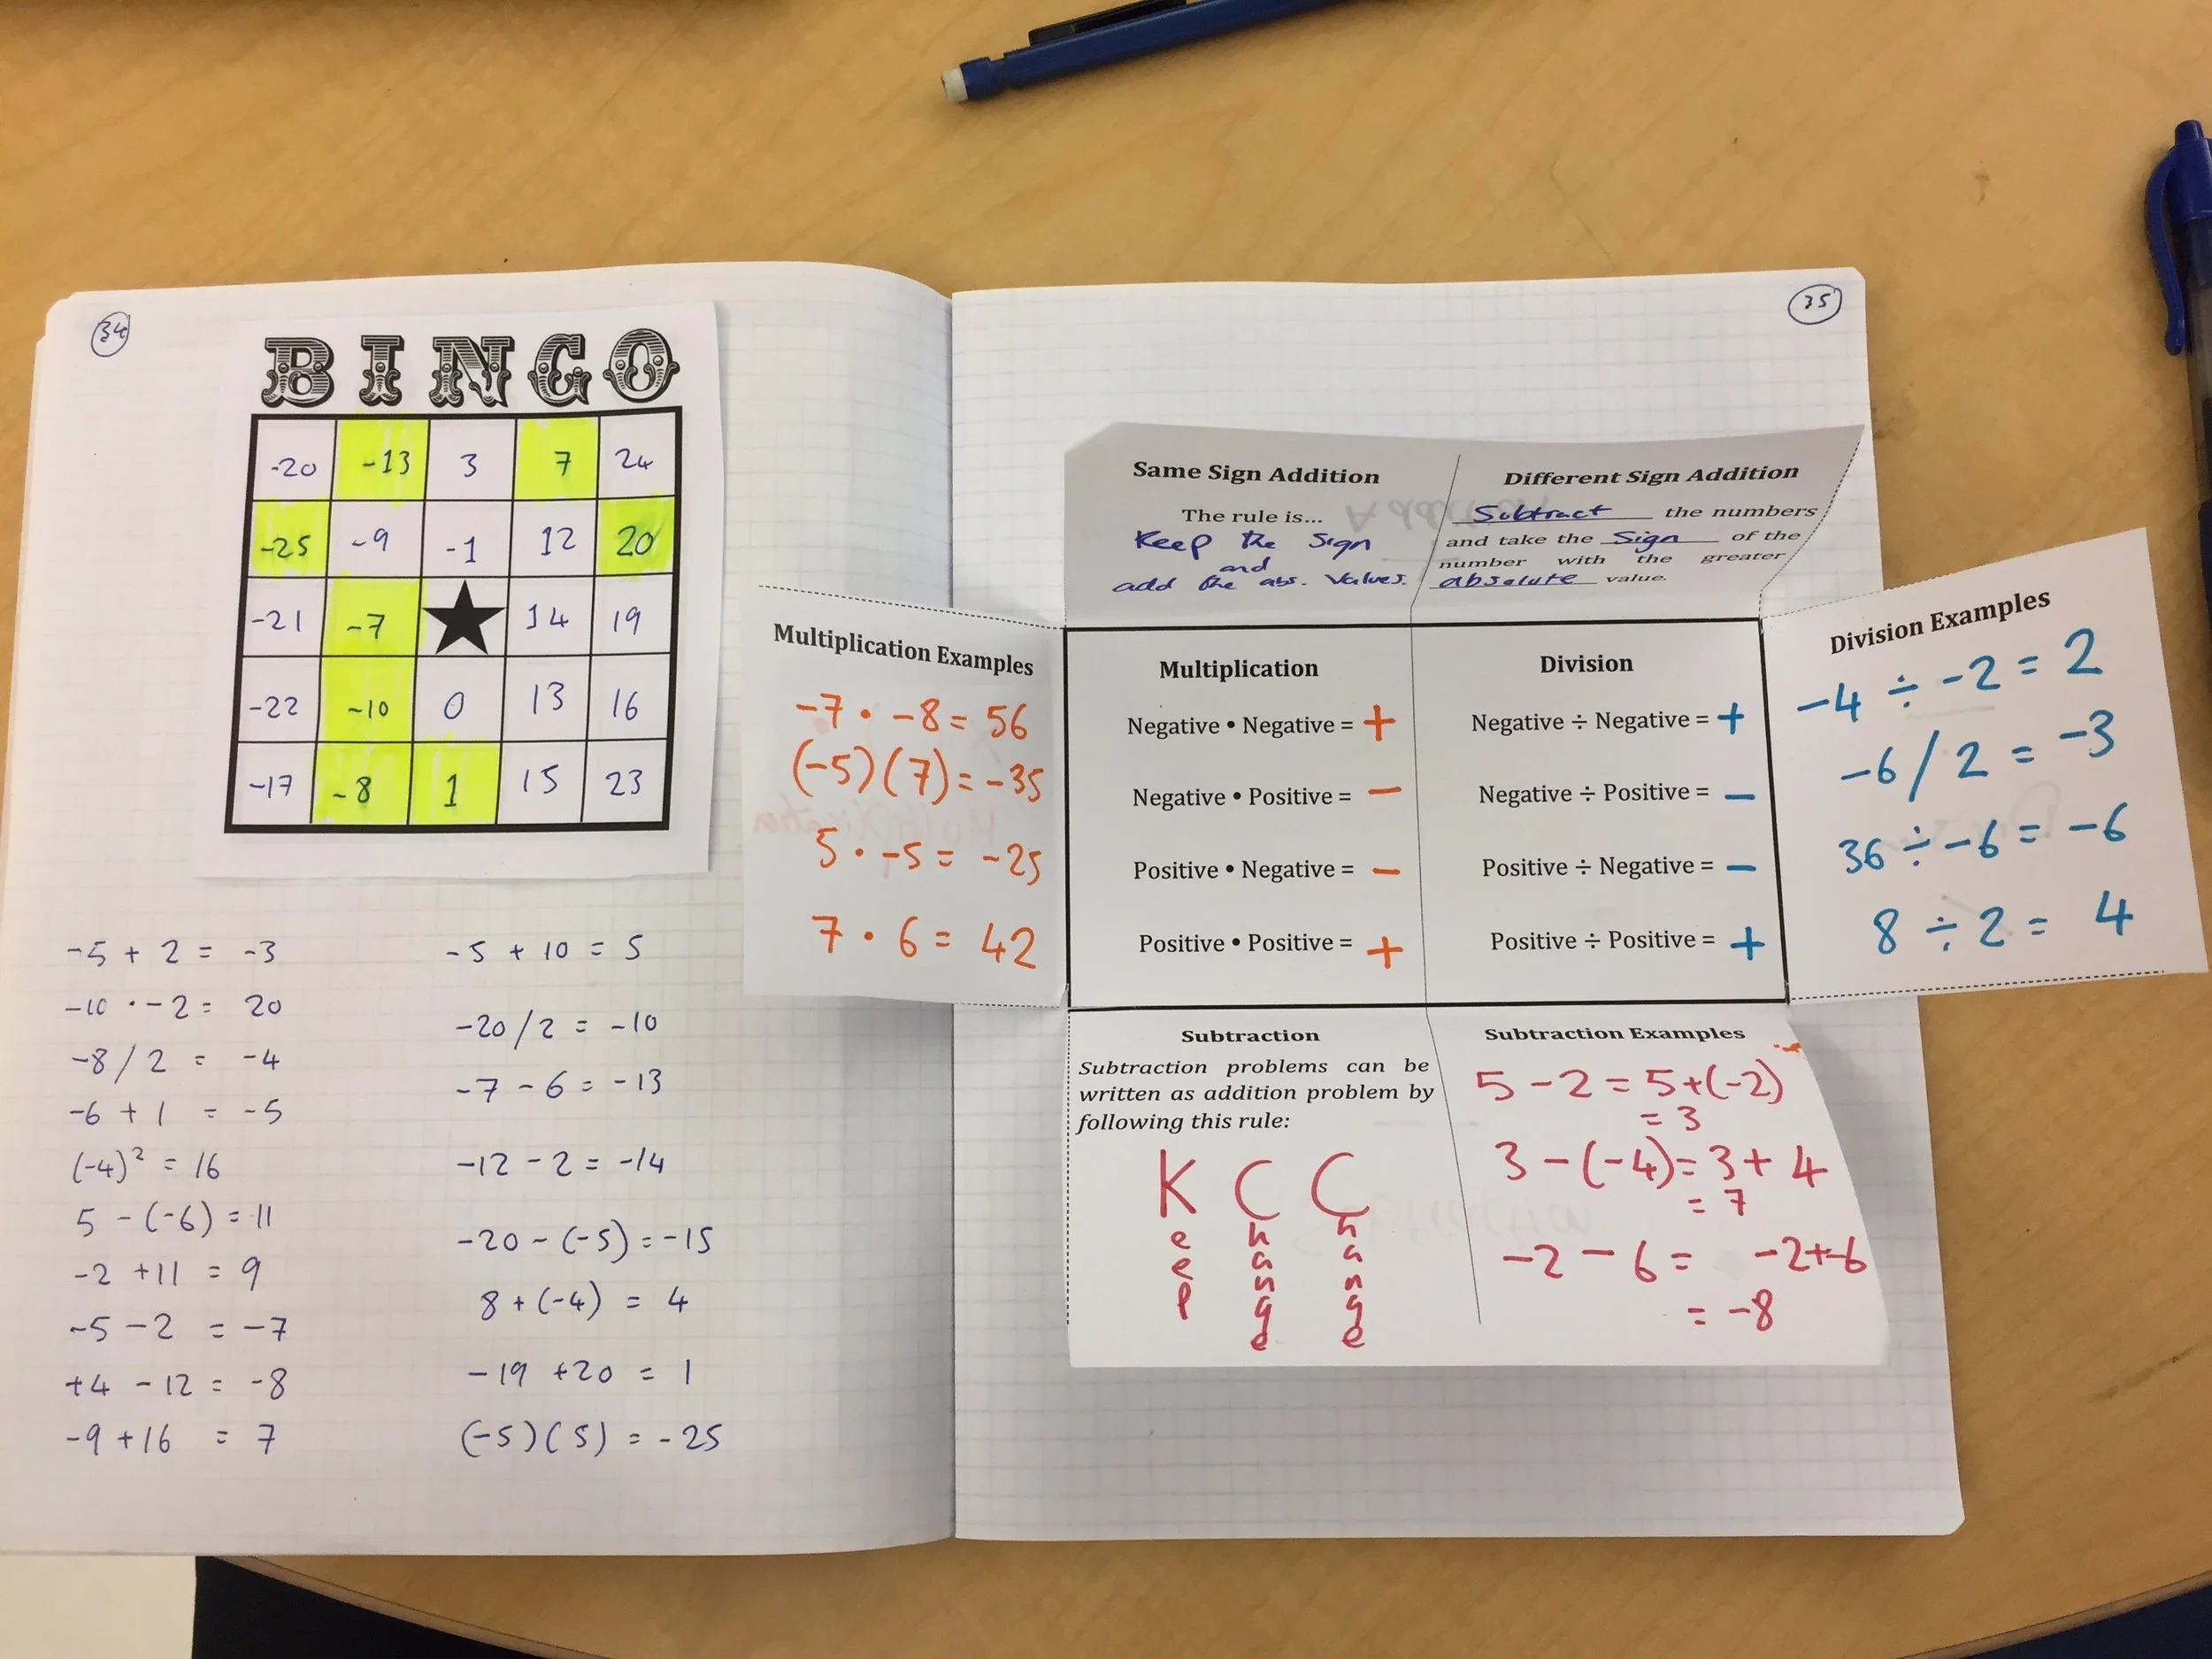 34
BINGO
-20 -13 3 7 24
-25 -9 -1 12 20
-21 -7 14 19
-22 -10 0 13 16
-17 -8 1 15 23
-5 + 2 = -3
-10 · -2 = 20
-8 / 2 = -4
-6 + 1 = -5
(-4)² = 16
5 - (-6) = 11
-2 + 11 = 9
-5 - 2 = -7
+4 - 12 = -8
-9 + 16 = 7
-5 + 10 = 5
-20/2 = -10
-7 - 6 = -13
-12 - 2 = -14
-20 - (-5) = -15
8 + (-4) = 4
-19 + 20 = 1
(-5)(5) = -25
35
Same Sign Addition
The rule is...
Keep the sign
and
add the abs. values.
Different Sign Addition
Subtract the numbers
and take the Sign of the
number with the greater
absolute value.
Multiplication Examples
-7 · -8 = 56
(-5)(7) = -35
5 · -5 = -25
7 · 6 = 42
Multiplication
Negative • Negative = +
Negative • Positive = −
Positive • Negative = −
Positive • Positive = +
Division
Negative ÷ Negative = +
Negative ÷ Positive = −
Positive ÷ Negative = −
Positive ÷ Positive = +
Division Examples
-4 ÷ -2 = 2
-6 / 2 = -3
36 ÷ -6 = -6
8 ÷ 2 = 4
Subtraction
Subtraction problems can be
written as addition problem by
following this rule:
Keep Change Change
Subtraction Examples
5 - 2 = 5 + (-2)
= 3
3 - (-4) = 3 + 4
= 7
-2 - 6 = -2 + -6
= -8